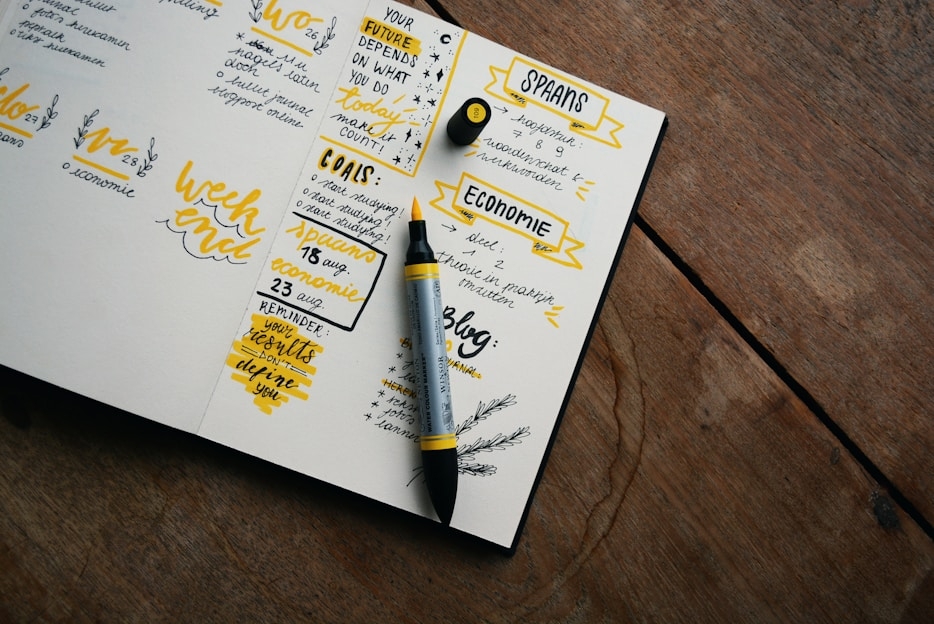 foto's herexamen
opmaak
herexamen
Wo 26
nagels laten
o bullet journal
blogpost online
do 27
vr 28
o economie
week
end
YOUR
FUTURE
DEPENDS
ON WHAT
YOU DO
today
make it
COUNT!
GOALS:
o start studying!
o start studying!
o start studying!
spaans
18 aug.
economie
23 aug.
REMINDER:
your
results
DON'T
define
you
SPAANS
→ hoofdstuk:
7 8 9
→ woordenschat &
werkwoorden
ECONOMIE
→ deel:
1 2
theorie in praktijk
omzetten
Blog:
JOURNAL:
WATER COLOUR MARKER
WINSOR